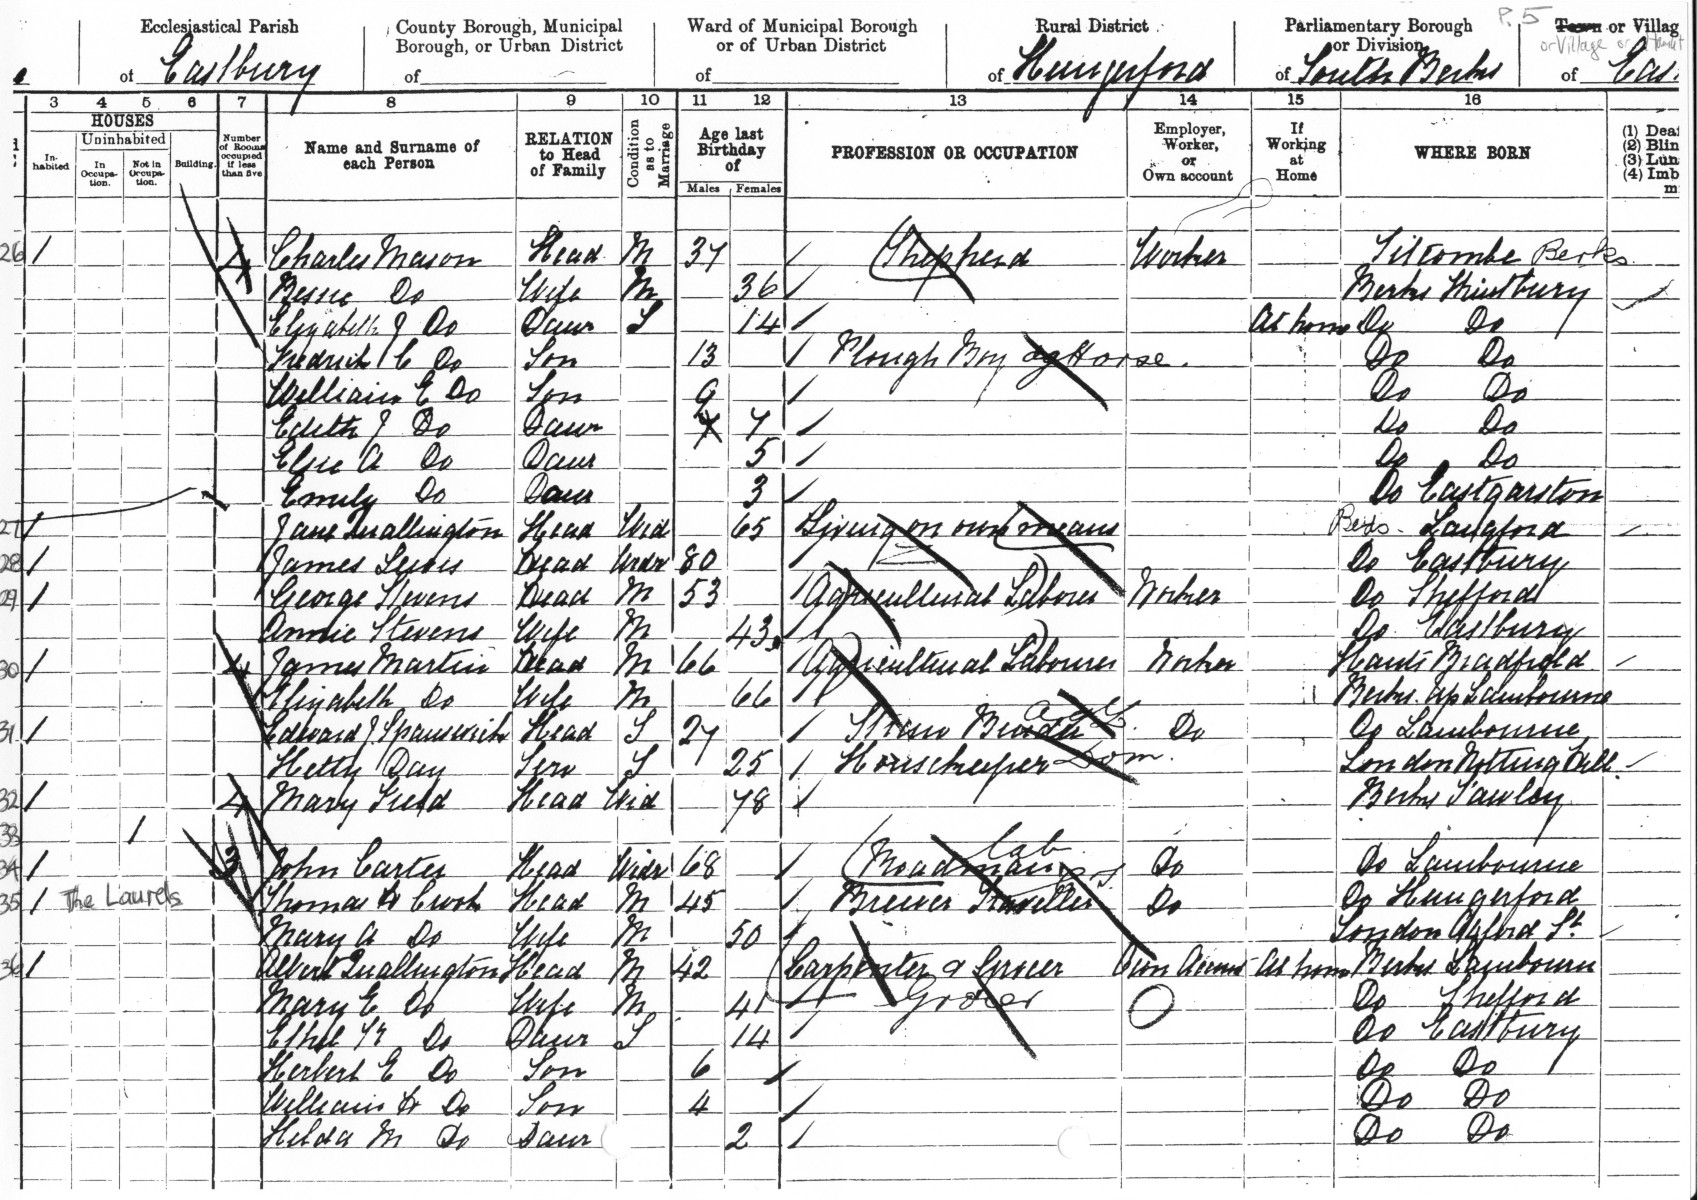 P.5
Ecclesiastical Parish
of Eastbury
County Borough, Municipal
Borough, or Urban District
of
Ward of Municipal Borough
or of Urban District
of
Rural District
of Hungerford
Parliamentary Borough
or Division
of South Berks
Town or Villag
or Village or Hamlet
of Eas
3 4 5 6 7 8 9 10 11 12 13 14 15 16
HOUSES
Uninhabited
In-
habited
In
Occupa-
tion.
Not in
Occupa-
tion.
Building.
Number
of Rooms
occupied
if less
than five
Name and Surname of
each Person
RELATION
to Head
of Family
Condition
as to
Marriage
Age last
Birthday
of
Males Females
PROFESSION OR OCCUPATION
Employer,
Worker,
or
Own account
If
Working
at
Home
WHERE BORN
(1) Deaf
(2) Blin
(3) Lun
(4) Imb
m
26 1 4 Charles Mason Head M 37 Shepherd Worker Titcombe Berks
Bessie Do Wife M 36 Berks Kintbury
Elizabeth J Do Daur S 14 At home Do Do
Fredrick C Do Son 13 Plough Boy ag Horse. Do Do
William E Do Son 9 Do Do
Edith J Do Daur 7 7 Do Do
Elsie A Do Daur 5 Do Do
Emily Do Daur 3 Do Eastgarston
27 1 Jane Quallington Head Wid 65 Living on own means Berks. Langford
28 1 James Lewis Head Widr 80 Do Eastbury
29 1 George Stevens Head M 53 Agricultural Laborer Worker Do Shefford
Annie Stevens Wife M 43 Do Eastbury
30 1 4 James Martin Head M 66 Agricultural Labourer Worker Hants Bradfield
Elizabeth Do Wife M 66 Berks. Up Lambourne
31 1 Edward J Spanswick Head S 27 Straw Do Do Lambourne
Hetty Day Serv S 25 Housekeeper Dom. London Notting Hill
32 1 4 Mary Field Head Wid 78 Berks Fawley
33 1
34 1 3 John Carter Head Widr 68 Roadman Lab Do Do Lambourne
35 1 The Laurels Thomas W Crook Head M 45 Brewer Traveller Do Do Hungerford
Mary A Do Wife M 50 London Oxford St.
36 1 Albert Quallington Head M 42 Carpenter & Grocer Own Account At home Berks Lambourn
Mary E Do Wife M 41 Grocer Do Shefford
Ethel M Do Daur S 14 Do Eastbury
Herbert E Do Son 6 Do Do
William H Do Son 4 Do Do
Hilda M Do Daur 2 Do Do